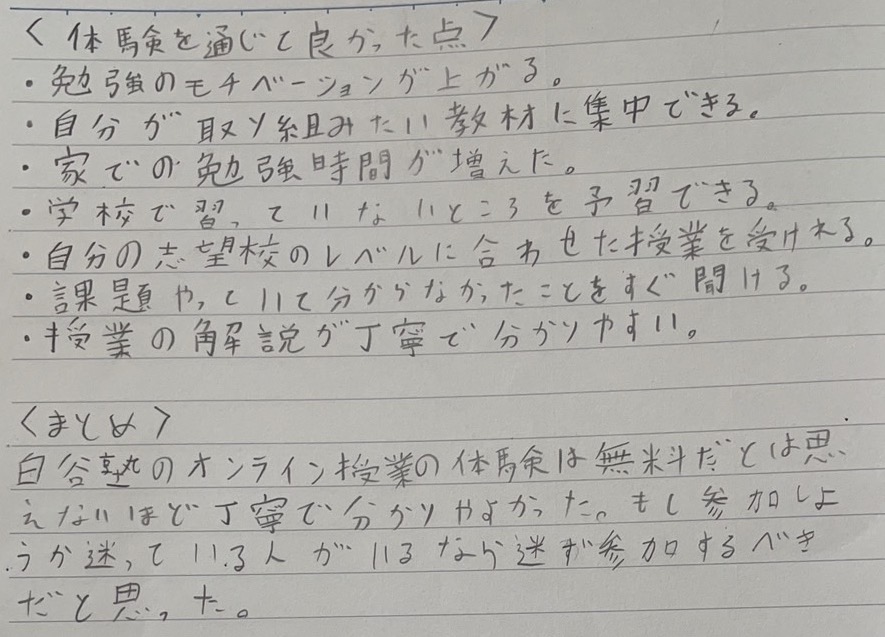 <体験を通じて良かった点>
・勉強のモチベーションが上がる。
・自分が取り組みたい教材に集中できる。
・家での勉強時間が増えた。
・学校で習っていないところを予習できる。
・自分の志望校のレベルに合わせた授業を受けれる。
・課題やっていて分からなかったことをすぐ聞ける。
・授業の解説が丁寧で分かりやすい。
<まとめ>
白谷塾のオンライン授業の体験は無料だとは思
えないほど丁寧で分かりやすかった。もし参加しよ
うか迷っている人がいるなら迷ず参加するべき
だと思った。